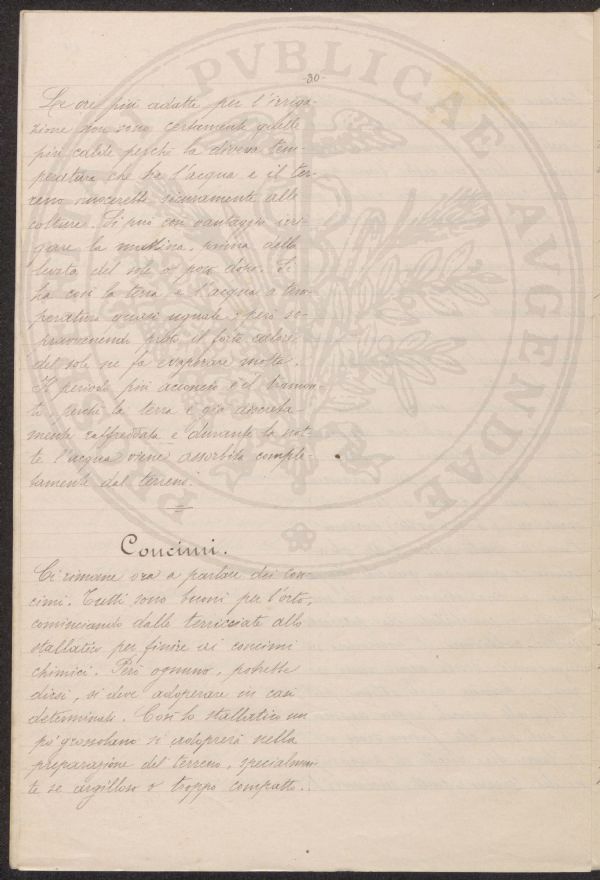 -30-
Le ore più adatte per l'irriga-
zione non sono certamente quelle
più calde perchè la diversa tem-
peratura che ha l'acqua e il ter-
reno nuocerebbe sicuramente alle
colture. Si può con vantaggio irri-
gare la mattina, prima della
levata del sole o poco dopo. Si
ha così la terra e l'acqua a tem-
peratura quasi uguale; però so-
pravvenendo presto il forte calore
del sole ne fa evaporare molta.
Il periodo più acconcio è il tramon-
to, perchè la terra è già discreta-
mente raffreddata e durante la not-
te l'acqua viene assorbita comple-
tamente dal terreno.
Concimi.
Ci rimane ora a parlare dei con-
cimi. Tutti sono buoni per l'orto,
cominciando dalle terricciate allo
stallatico per finire ai concimi
chimici. Però ognuno, potrebbe
dirsi, si deve adoperare in casi
determinati. Così lo stallatico un
pò grossolano si adoprerà nella
preparazione del terreno, specialmen-
te se argilloso o troppo compatto.
PVBLICAE AVGENDAE